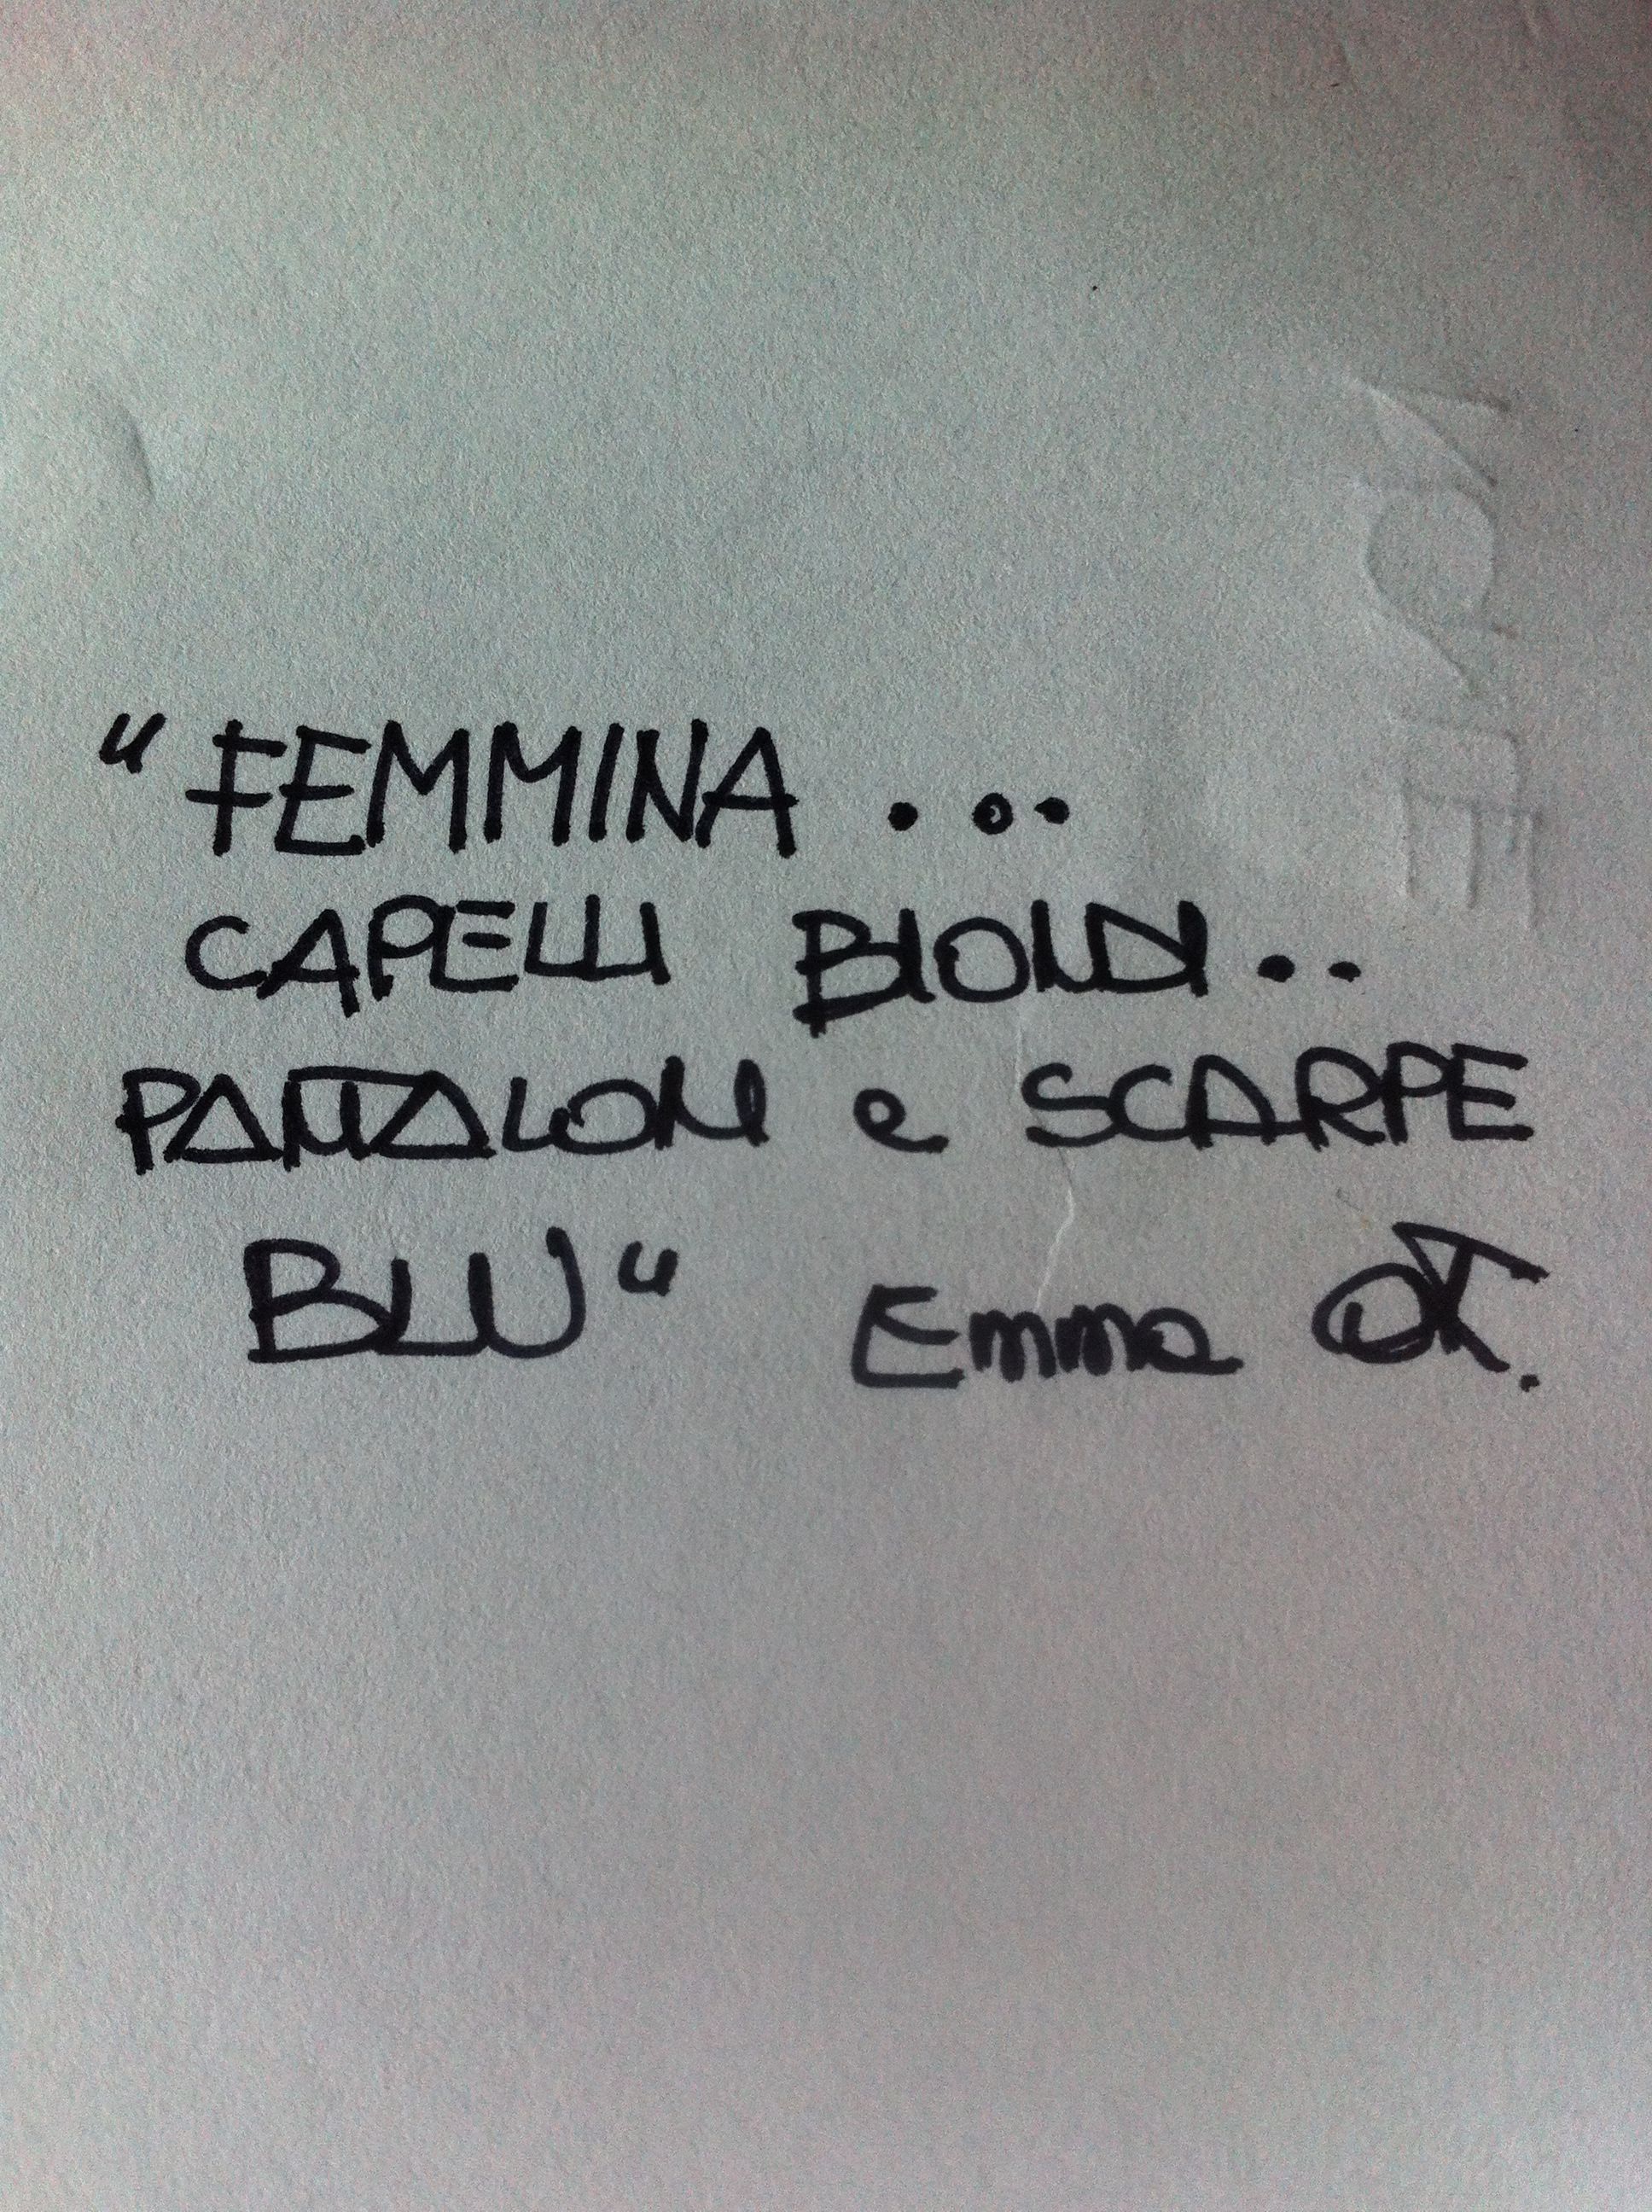 "FEMMINA ...
CAPELLI BIONDI..
PANTALONI e SCARPE
BLU" Emma